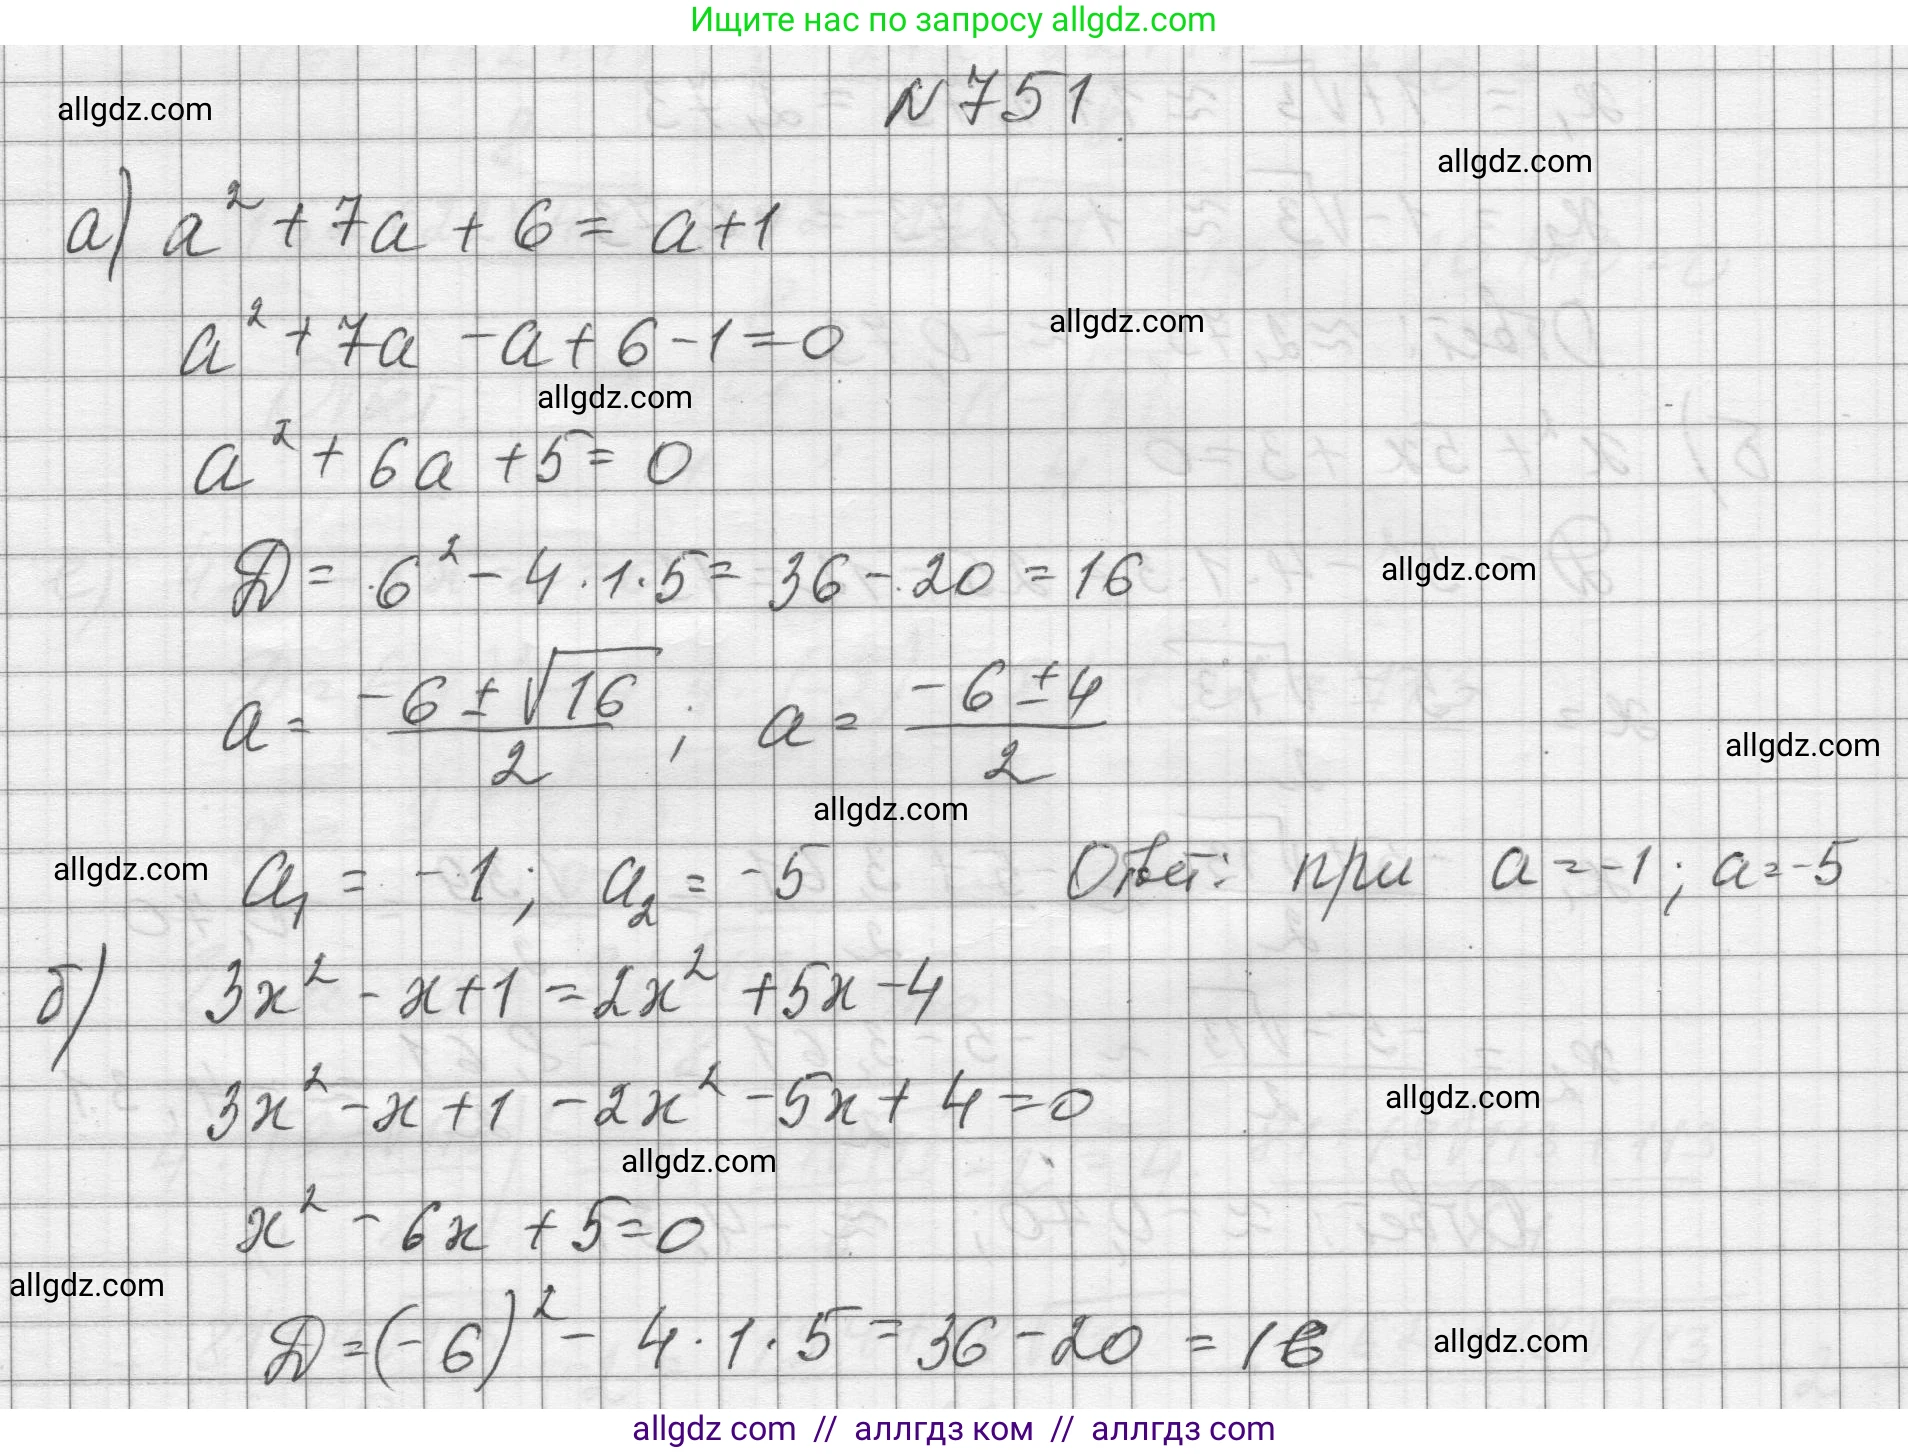 Ищите нас по запросу allgdz.com
N 751
allgdz.com
allgdz.com
а) a² + 7a + 6 = a + 1
a² + 7a - a + 6 - 1 = 0
allgdz.com
allgdz.com
a² + 6a + 5 = 0
Д = 6² - 4 · 1 · 5 = 36 - 20 = 16
allgdz.com
a = (-6 ± √16)/2 ; a = (-6 ± 4)/2
allgdz.com
allgdz.com
allgdz.com
a₁ = -1; a₂ = -5 Ответ: при a = -1; a = -5
б) 3x² - x + 1 = 2x² + 5x - 4
3x² - x + 1 - 2x² - 5x + 4 = 0
allgdz.com
allgdz.com
x² - 6x + 5 = 0
allgdz.com
Д = (-6)² - 4 · 1 · 5 = 36 - 20 = 16
allgdz.com
allgdz com // аллгдз ком // аллгдз com